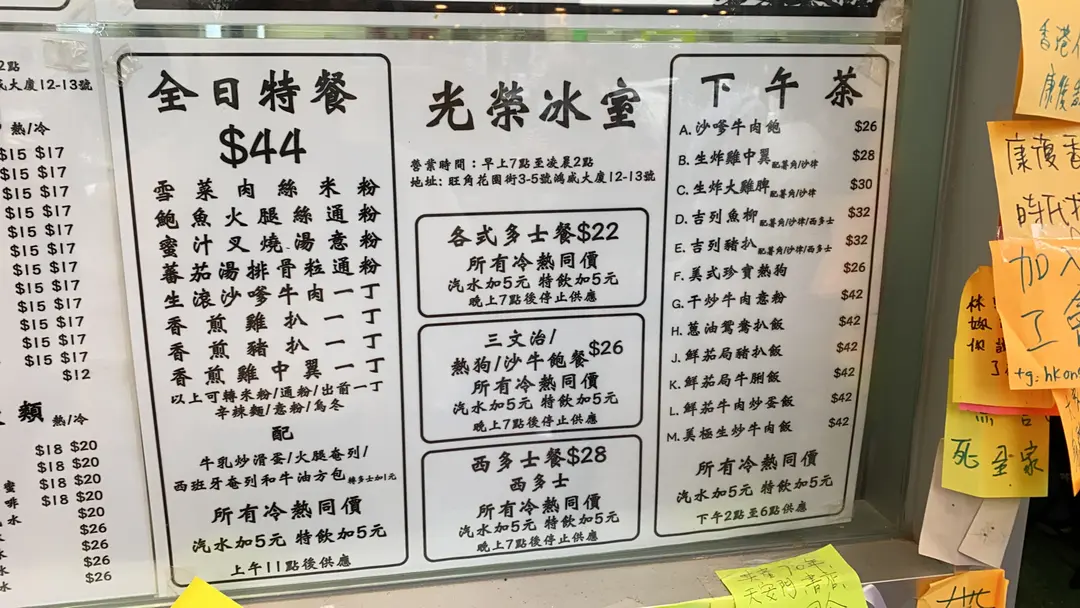 2點
威大廈12-13號
熱/冷
$15 $17
$15 $17
$15 $17
$15 $17
$15 $17
$15 $17
$15 $17
$15 $17
$15 $17
$15 $17
$15 $17
$12
類 熱/冷
$18 $20
$18 $20
蜜 $18 $20
啡 $18 $20
水 $20
$26
$26
$26
$26
全日特餐
$44
雪菜肉絲米粉
鮑魚火腿絲通粉
蜜汁叉燒湯意粉
蕃茄湯排骨粒通粉
生滾沙嗲牛肉一丁
香煎雞扒一丁
香煎豬扒一丁
香煎雞中翼一丁
以上可轉米粉/通粉/出前一丁
辛辣麵/意粉/烏冬
配
牛乳炒滑蛋/火腿奄列/
西班牙奄列和牛油方包 轉多士加1元
所有冷熱同價
汽水加5元 特飲加5元
上午11點後供應
光榮冰室
營業時間：早上7點至凌晨2點
地址: 旺角花園街3-5號鴻威大廈12-13號
各式多士餐$22
所有冷熱同價
汽水加5元 特飲加5元
晚上7點後停止供應
三文治/
熱狗/沙牛飽餐 $26
所有冷熱同價
汽水加5元 特飲加5元
晚上7點後停止供應
西多士餐$28
西多士
所有冷熱同價
汽水加5元 特飲加5元
晚上7點後停止供應
下午茶
A. 沙嗲牛肉飽 $26
B. 生炸雞中翼 配薯角/沙律 $28
C. 生炸大雞脾 配薯角/沙律 $30
D. 吉列魚柳 配薯角/沙律/西多士 $32
E. 吉列豬扒 配薯角/沙律/西多士 $32
F. 美式珍寶熱狗 $26
G. 干炒牛肉意粉 $42
H. 蔥油鴛鴦扒飯 $42
J. 鮮茄焗豬扒飯 $42
K. 鮮茄焗牛脷飯 $42
L. 鮮茄牛肉炒蛋飯 $42
M. 美極生炒牛肉飯 $42
所有冷熱同價
汽水加5元 特飲加5元
下午2點至6點供應
香港
康復
康復香
時代
加入
了
tg: hkon
林
死全家
天安門